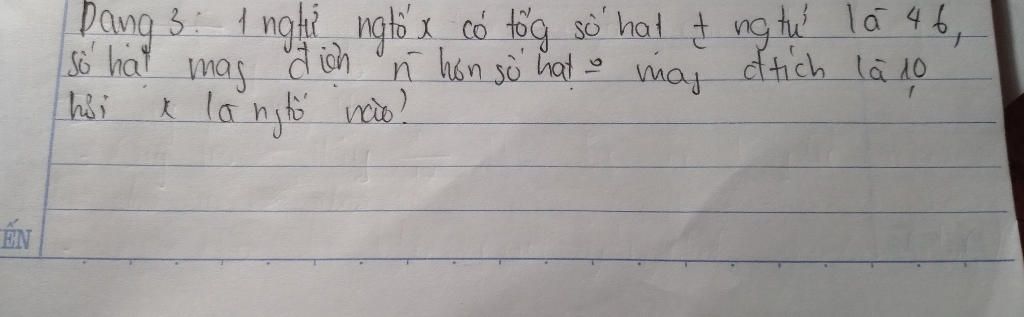 Dạng 3: 1 ngtử ngtố x có tổg số hạt ± ngtử là 46,
số hạt mag điện n̄ hơn số hạt ⁰ mag đtích là 10
hỏi x là ngtố nào?
ẾN